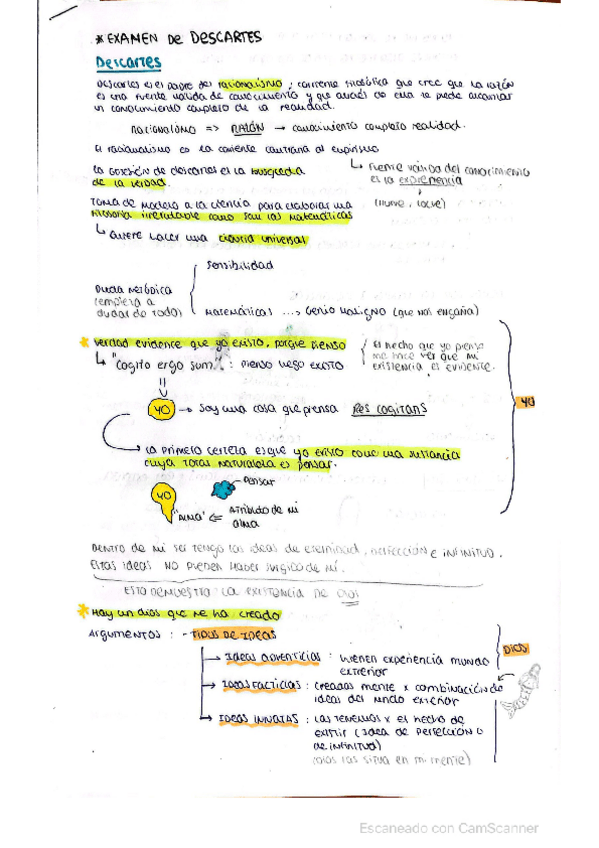 * EXAMEN DE DESCARTES
Descartes
Descartes es el padre del racionalismo, corriente filosófica que cree que la razón
es una fuente válida de conocimiento y que através de ella se puede alcanzar
un conocimiento completo de la realidad.
racionalismo => RAZÓN → conocimiento completo realidad.
El racionalismo es la corriente contraria al empirismo
↳ Fuente válida del conocimiento
es la experiencia
(Hume, Locke)
La obsesión de descartes es la búsqueda
de la verdad.
Toma de modelo a la ciencia para elaborar una
filosofía irrefutable como son las matemáticas
↳ Quiere hacer una ciencia universal
Duda metódica
(empieza a
dudar de todo)
Sensibilidad
Matemáticas ...> Genio maligno (que nos engaña)
* Verdad evidence que yo existo, porque pienso
↳ "Cogito ergo sum" : pienso luego existo
El hecho que yo piense
me hace ver que mi
existencia es evidente.
YO
YO → Soy una cosa que piensa Res cogitans
→ La primera certeza es que yo existo como una sustancia
cuya total naturaleza es pensar.
YO
Pensar
"ALMA" <= Atributo de mi
alma
Dentro de mi ser tengo las ideas de eternidad, perfección e infinitud.
Estas ideas NO pueden haber surgido de mí.
ESTO DEMUESTRA LA EXISTENCIA DE DIOS
* Hay un dios que me ha creado
Argumentos : - TIPOS DE IDEAS
DIOS
→ IDEAS ADVENTICIAS : vienen experiencia mundo
exterior
→ IDEAS FACTICIAS : creadas mente x combinación de
ideas del mundo exterior
→ IDEAS INNATAS : las tenemos x el hecho de
existir (idea de perfección o
de infinitud)
(Dios las situa en mi mente)
Escaneado con CamScanner